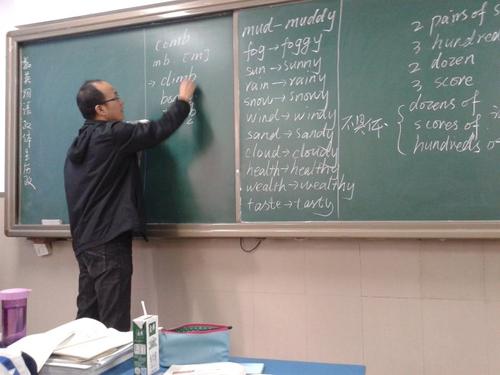 comb
mb [m]
→ climb
mud - muddy
fog → foggy
sun → sunny
rain → rainy
snow → snowy
wind → windy
sand → sandy
cloud → cloudy
health → healthy
wealth → wealthy
taste → tasty
2 pairs of
3 hundred
2 dozen
3 score
dozens of
scores of
hundreds of